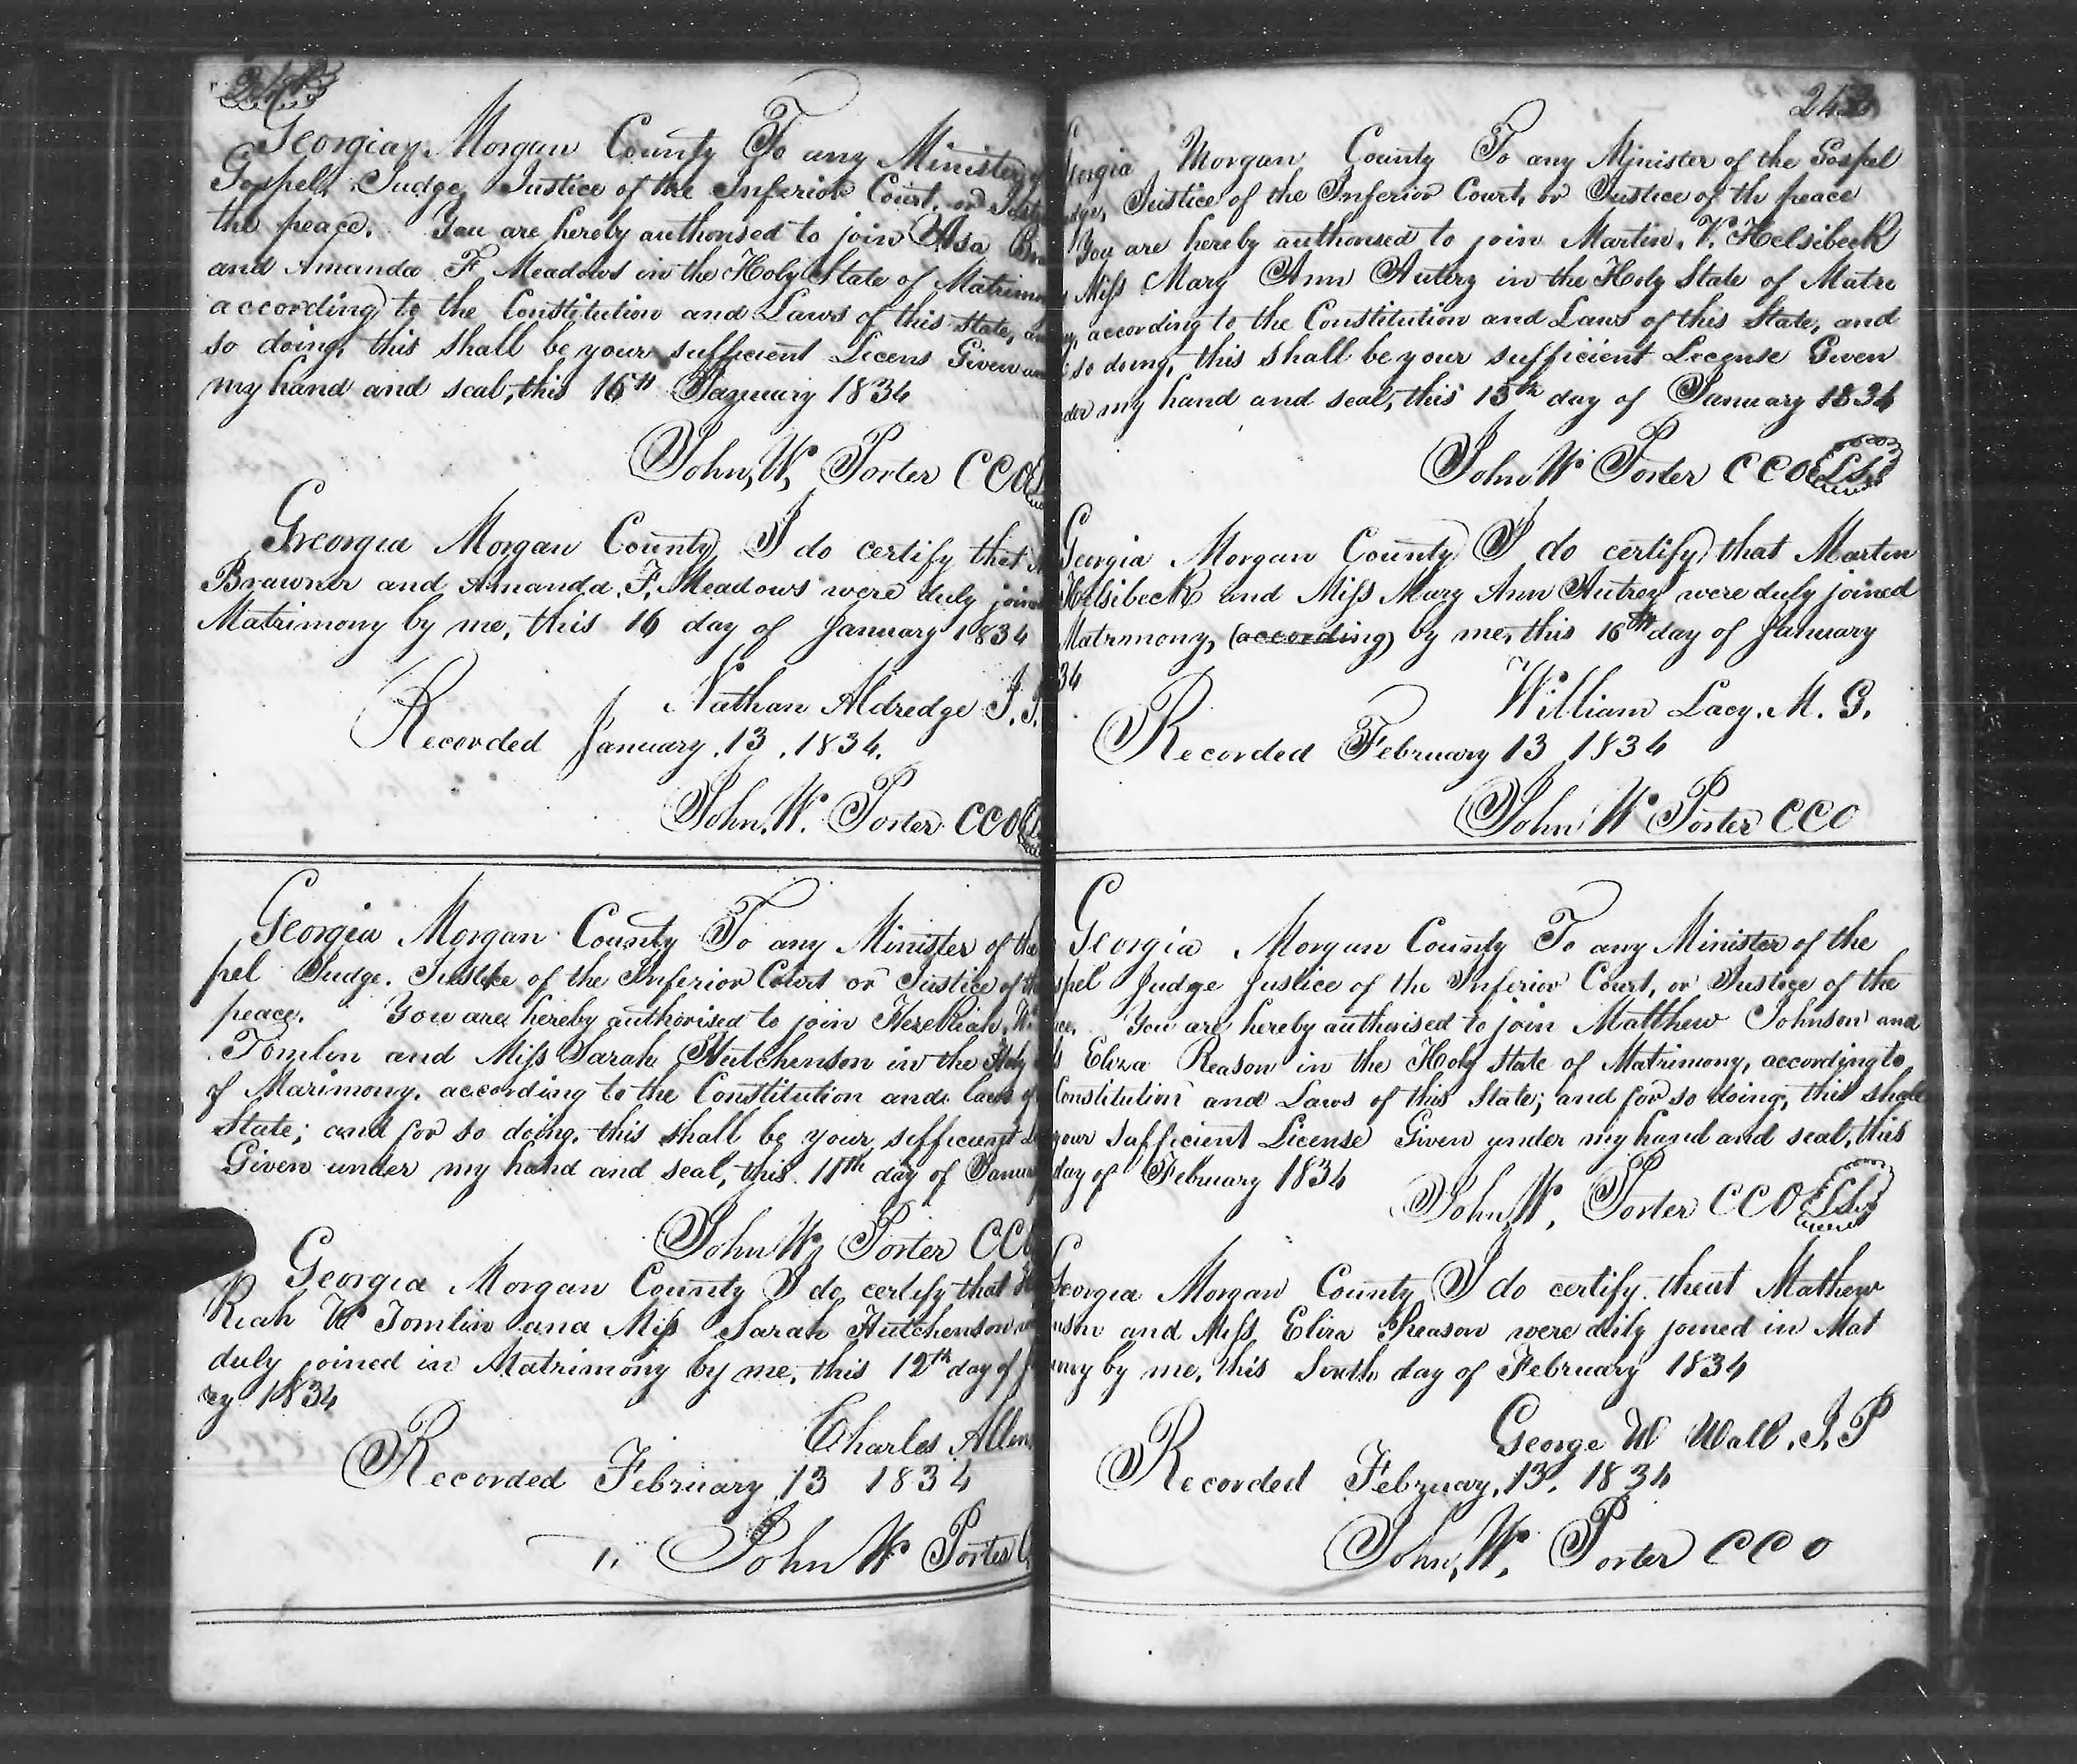 Georgia, Morgan County To any Minister
Gospel, Judge, Justice of the Inferior Court, or
the peace. You are hereby authorised to join Asa
and Amanda F Meadows in the Holy State of Matrimo
according to the Constitution and Laws of this State,
so doing, this shall be your sufficient Licens Given
my hand and seal, this 16th January 1834
John, W, Porter CCO
Greorgia Morgan County, I do certify that
Brawner and Amanda, F, Meadows were duly join
Matrimony by me, this 16 day of January 1834
Nathan Aldredge J.
Recorded January, 13, 1834.
John, W. Porter CCO
Georgia Morgan County To any Minister of the
pel Judge. Justice of the Inferior Court or Justice of th
peace. You are hereby authorised to join Hezekiah, W
Tomlin and Miss Sarah Hutchenson in the Holy
of Marimony, according to the Constitution and laws of
State; and for so doing, this shall be your sufficient
Given under my hand and seal, this 11th day of Janua
John W, Porter CC
Georgia Morgan County I do certify that
Kiah W Tomlin and Miss Sarah Hutchenson
duly joined in Matrimony by me, this 12th day of
ry 1834
Charles Allen
Recorded February 13 1834
John W Porter
orgia Morgan County To any Minister of the Gospel
Justice of the Inferior Court, or Justice of th peace
You are hereby authorised to join Martin, V. Helsibeck
Miss Mary Ann Autery in the Holy State of Matri
according to the Constitution and Laws of this State, and
so doing, this shall be your sufficient License Given
der my hand and seal, this 15th day of January 1834
John W Porter CCO LS
Georgia Morgan County I do certify that Martin
Helsibeck and Miss Mary Ann Autrey were duly joined
Matrmony, (according) by me, this 16th day of January
34
William Lacy. M. G.
Recorded February 13 1834
John W Porter CCO
Georgia Morgan County To any Minister of the
spel Judge Justice of the Inferior Court, or Justice of the
ce. You are hereby authorised to join Matthew Johnson and
Eliza Reason in the Holy State of Matrimony, according to
Constitution and Laws of this State; and for so doing, this shall
your sufficient License Given under my hand and seal, this
day of February 1834
John, W, Porter CCO LS
Georgia Morgan County I do certify that Mathew
nson and Miss Eliza Reason were duly joined in Mat
mony by me, this Sixth day of February 1834
George W Wall, J.P
Recorded February, 13, 1834
John, W, Porter CCO